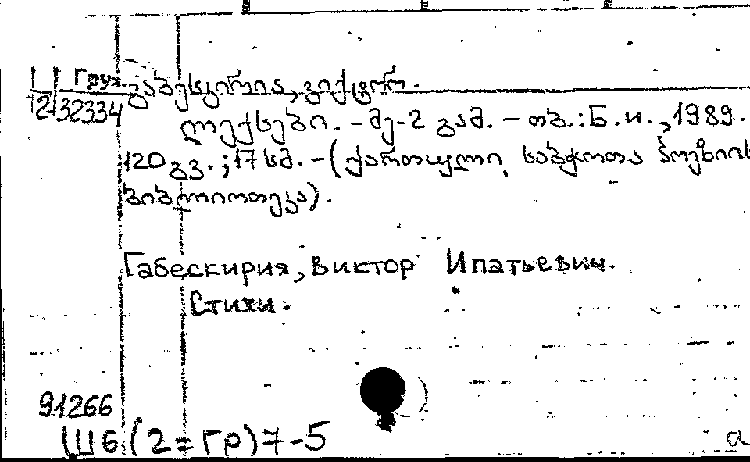 Ц Груз. გაბესკირია, ვიქტორ.
2132334
ლექსები. - მე-2 გამ. - თბ.: Б. и., 1989.
120 გვ. ; 17 სმ. - (ქართული საბჭოთა პოეზიის
ბიბლიოთეკა).
Габескирия, Виктор Ипатьевич.
Стихи.
91266
Ш6(2=Гр)7-5